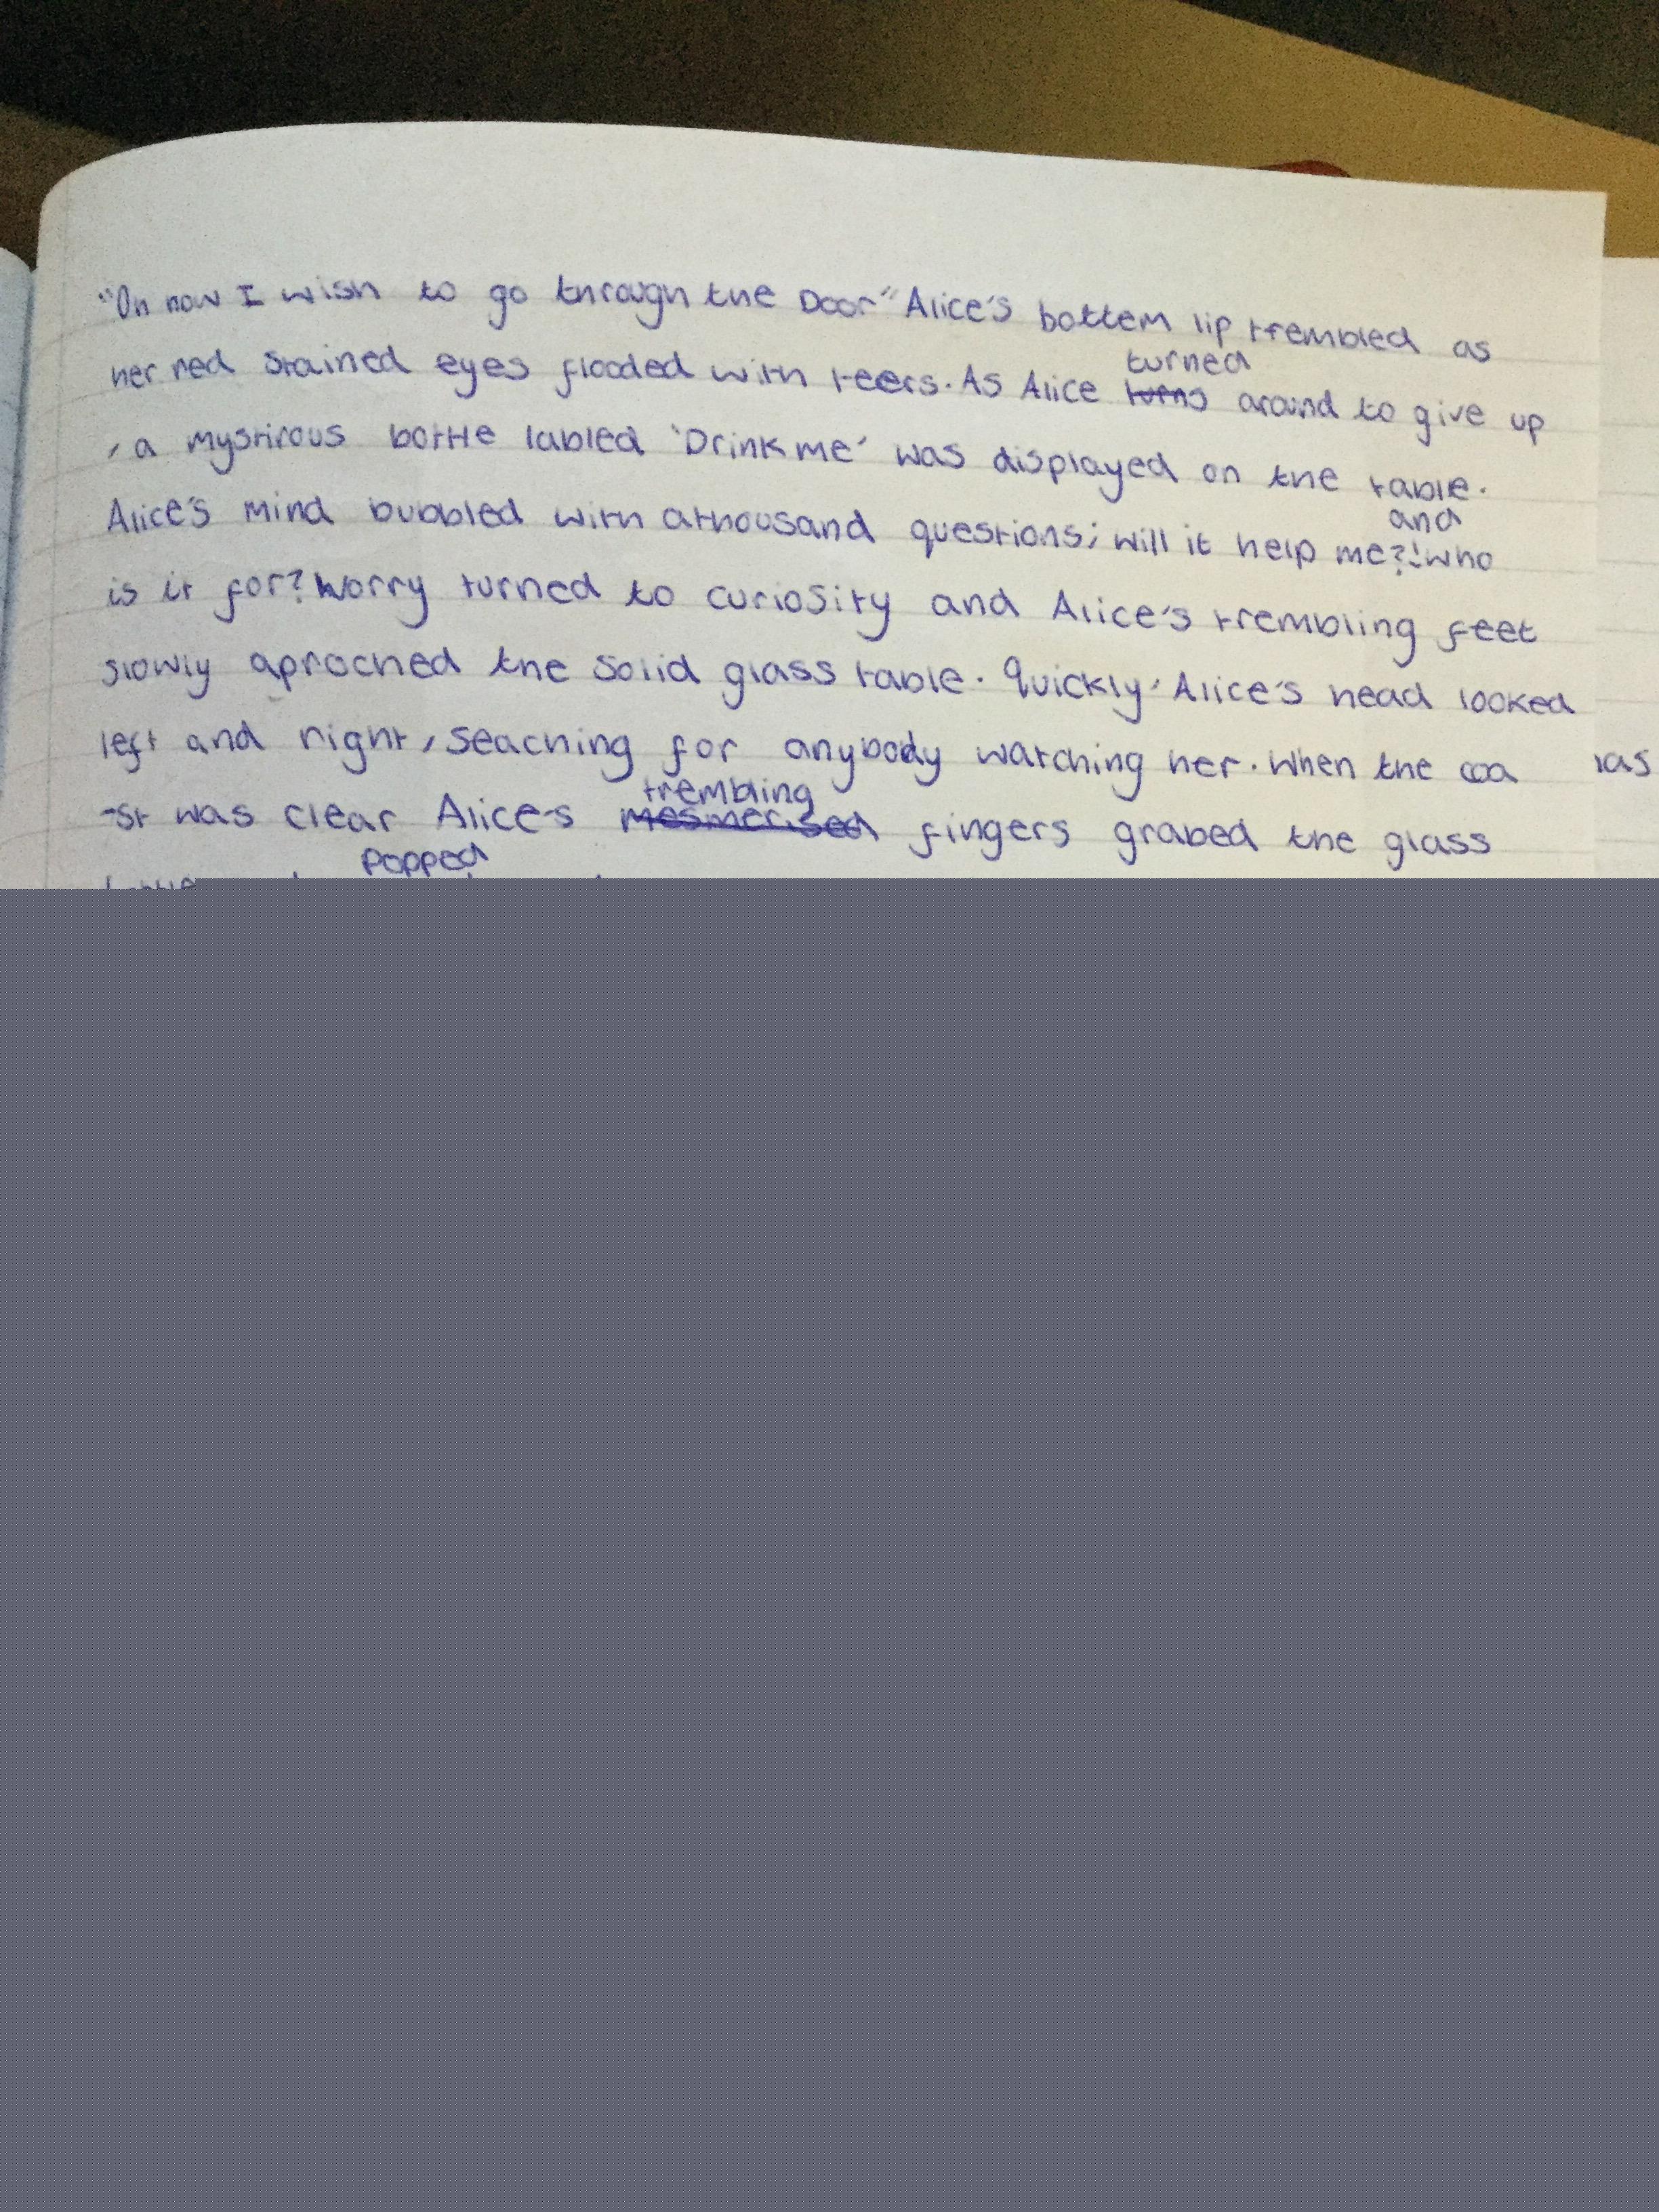 "Oh how I wish to go through the Door" Alice's bottem lip trembled as
her red stained eyes flooded with teers. As Alice turned turns around to give up
, a mystirous bottle labled 'Drink me' was displayed on the table.
Alice's mind bubbled with a thousand questions; will it help me?! and who
is it for? Worry turned to curiosity and Alice's trembling feet
slowly aproched the solid glass table. Quickly, Alice's head looked
left and right, seaching for anybody watching her. When the coa
-st was clear Alice's trembling mesmerised fingers grabed the glass
popped